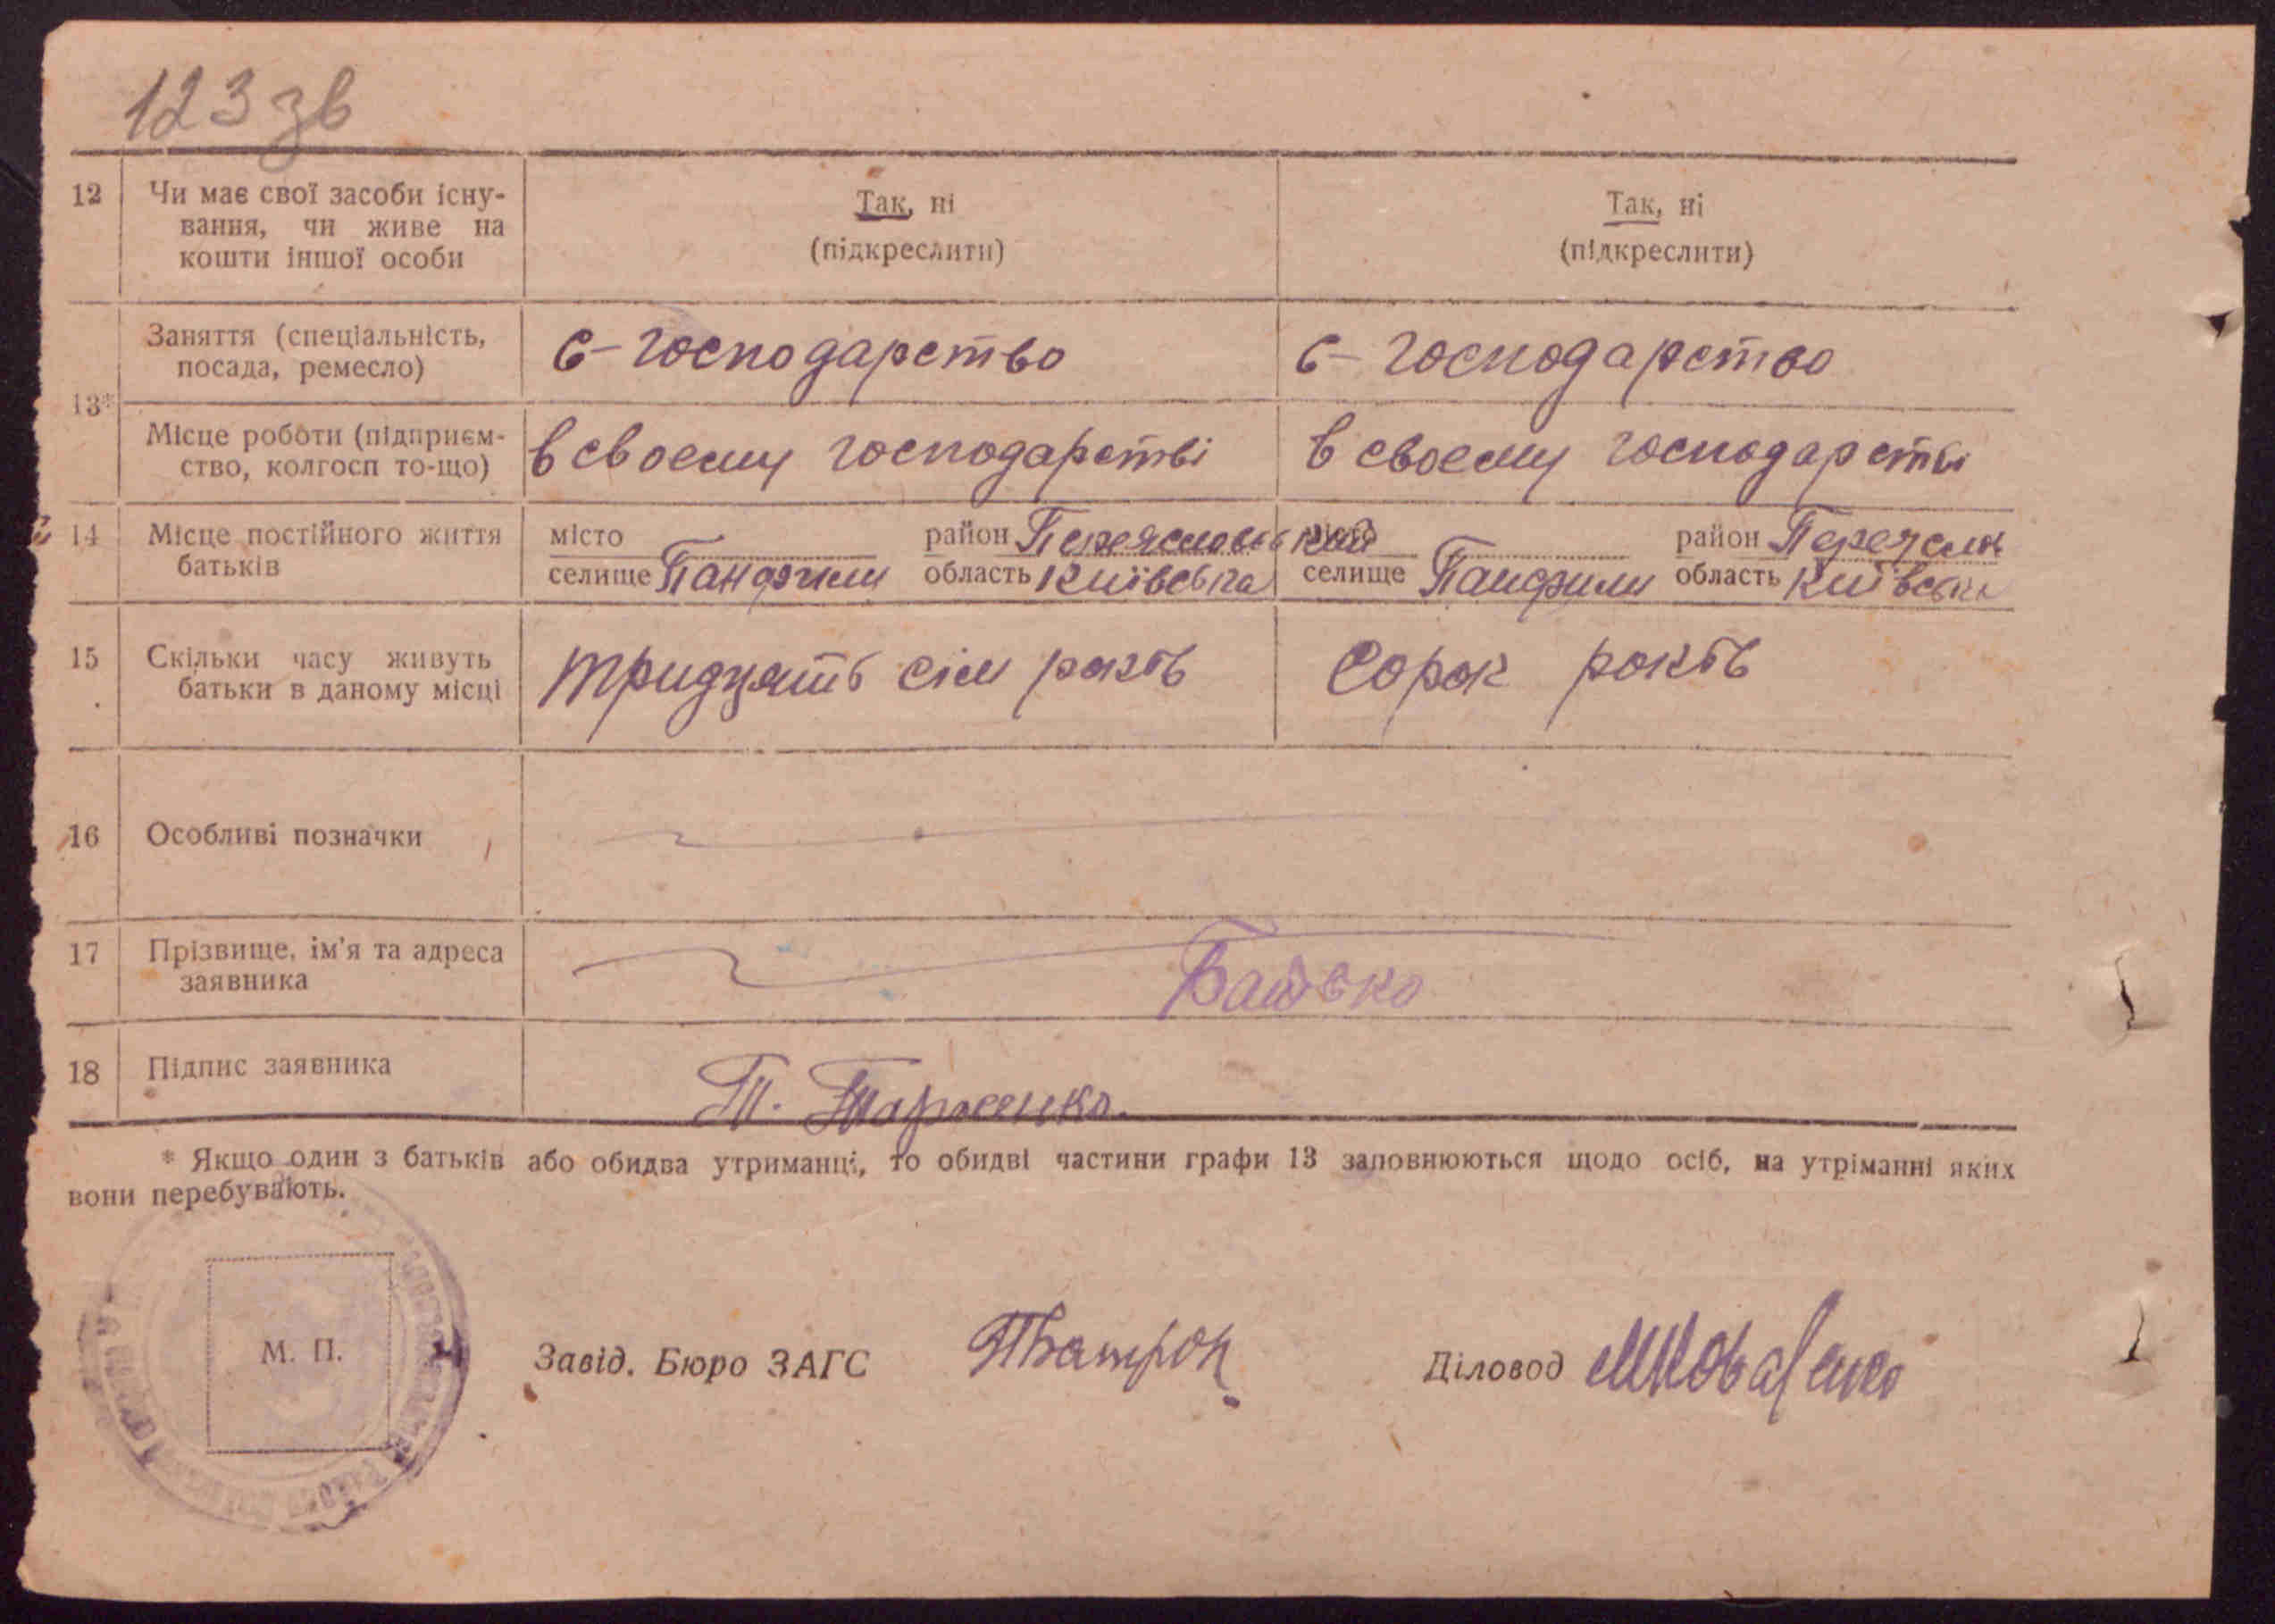 123 зв
12 Чи має свої засоби існу- Так, ні Так, ні
вання, чи живе на (підкреслити) (підкреслити)
кошти іншої особи
Заняття (спеціальність, с-господарство с-господарство
посада, ремесло)
13*
Місце роботи (підприєм- в своему господарстві в своему господарстві
ство, колгосп то-що)
14 Місце постійного життя місто район Переяславський місто район Переяслов
батьків селище Панфили область Київська селище Панфили область Київська
15 Скільки часу живуть тридцять сім років Сорок років
батьки в даному місці
16 Особливі позначки
17 Прізвище, ім'я та адреса Батько
заявника
18 Підпис заявника Т. Тарасенко.
* Якщо один з батьків або обидва утриманці, то обидві частини графи 13 заповнюються щодо осіб, на утріманні яких
вони перебувають.
М. П.
Завід. Бюро ЗАГС Діловод МКоваленко